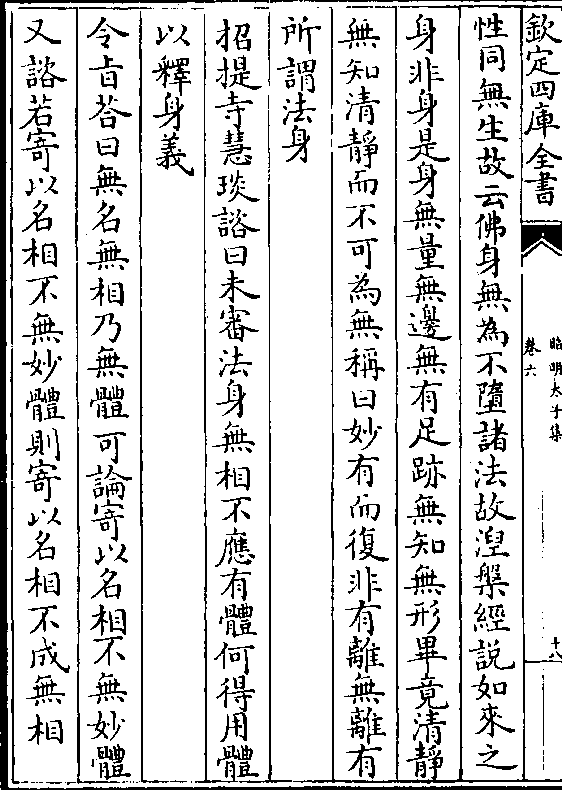 欽定四庫全書
昭明太子集
卷六
十八
性同無生故云佛身無為不墮諸法故湼槃經說如來之
身非身是身無量無邊無有足跡無知無形畢竟清靜
無知清靜而不可為無稱曰妙有而復非有離無離有
所謂法身
招提寺慧琰諮曰未審法身無相不應有體何得用體
以釋身義
令旨荅曰無名無相乃無體可論寄以名相不無妙體
又諮若寄以名相不無妙體則寄以名相不成無相